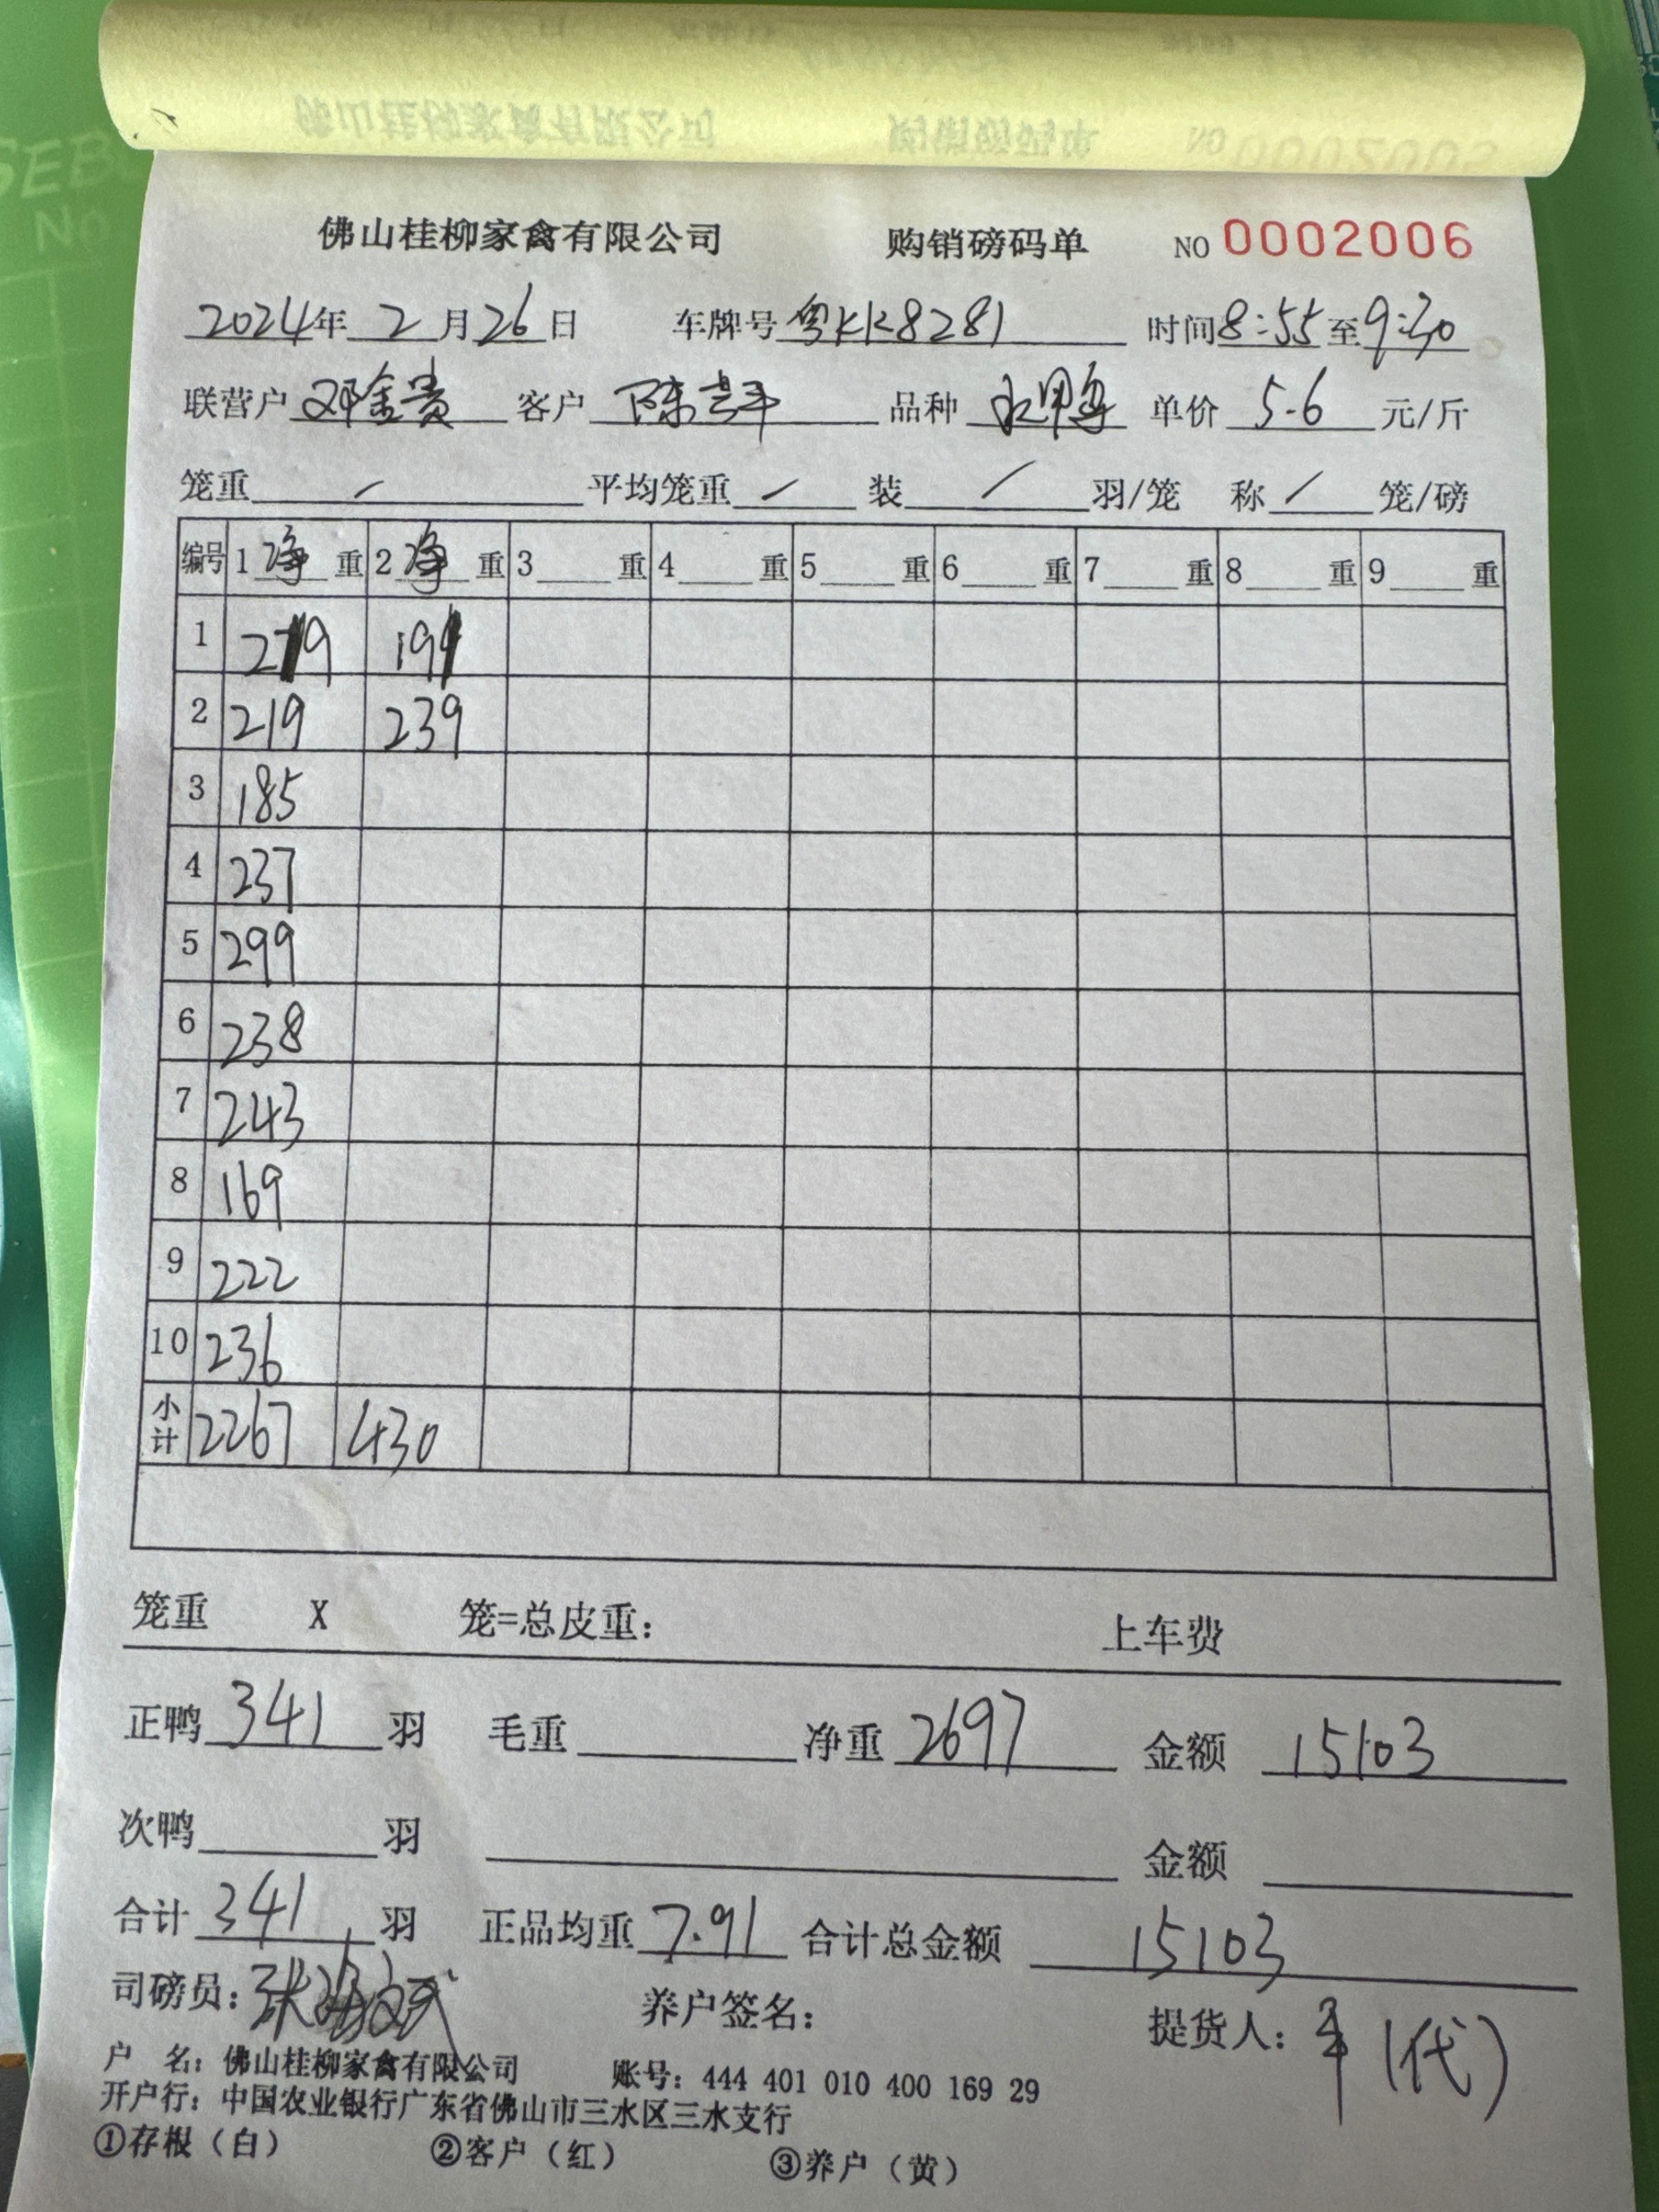 佛山桂柳家禽有限公司 购销磅码单 NO 0002006
2024年 2 月 26 日 车牌号 粤KK8281 时间 8:55 至 9:30
联营户 邓金贵 客户 陈 品种 鸭 单价 5.6 元/斤
笼重 / 平均笼重 / 装 / 羽/笼 称 / 笼/磅
编号 1 净 重 2 净 重 3 重 4 重 5 重 6 重 7 重 8 重 9 重
1 219 191
2 219 239
3 185
4 237
5 299
6 238
7 243
8 169
9 222
10 236
小计 2267 430
笼重 X 笼=总皮重: 上车费
正鸭 341 羽 毛重 净重 2697 金额 15103
次鸭 羽 金额
合计 341 羽 正品均重 7.91 合计总金额 15103
司磅员: 张 养户签名: 提货人: (代)
户 名: 佛山桂柳家禽有限公司 账号: 444 401 010 400 169 29
开户行: 中国农业银行广东省佛山市三水区三水支行
①存根（白） ②客户（红） ③养户（黄）